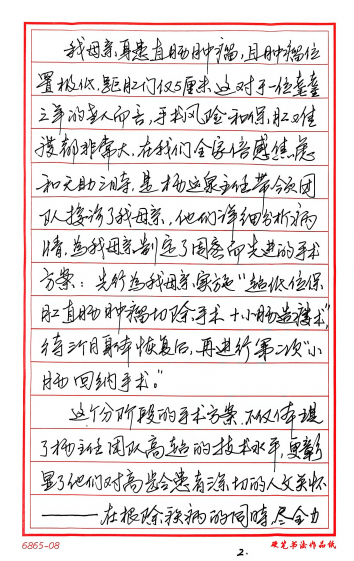 我母亲身患直肠肿瘤，且肿瘤位
置极低，距肛门仅5厘米，这对于一位耄耋
之年的老人而言，手术风险和保肛难
度都非常大，在我们全家倍感焦虑
和无助之时，是杨运泉主任带领团
队接诊了我母亲，他们详细分析病
情，为我母亲制定了周密而先进的手术
方案：先行为我母亲实施“超低位保
肛直肠肿瘤切除手术＋小肠造瘘术”，
待三个月身体恢复后，再进行第二次“小
肠回纳手术。”
这个分阶段的手术方案，不仅体现
了杨主任团队高超的技术水平，更彰
显了他们对高龄患者深切的人文关怀
——在根除疾病的同时，尽全力
6865-08
2.
硬笔书法作品纸